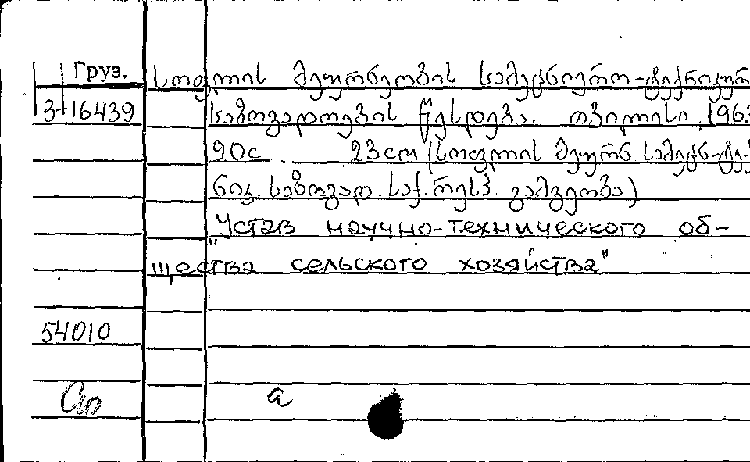 Груз.
სოფლის მეურნეობის სამეცნიერო-ტექნიკურ
3-16439
საზოგადოების წესდება. თბილისი, 196
20с. 23см (სოფლის მეურნ სამეცნ-ტექ
ნიკ. საზოგად საქ. რესპ. გამგეობა)
"Устав научно-технического об-
щества сельского хозяйства"
54010
а